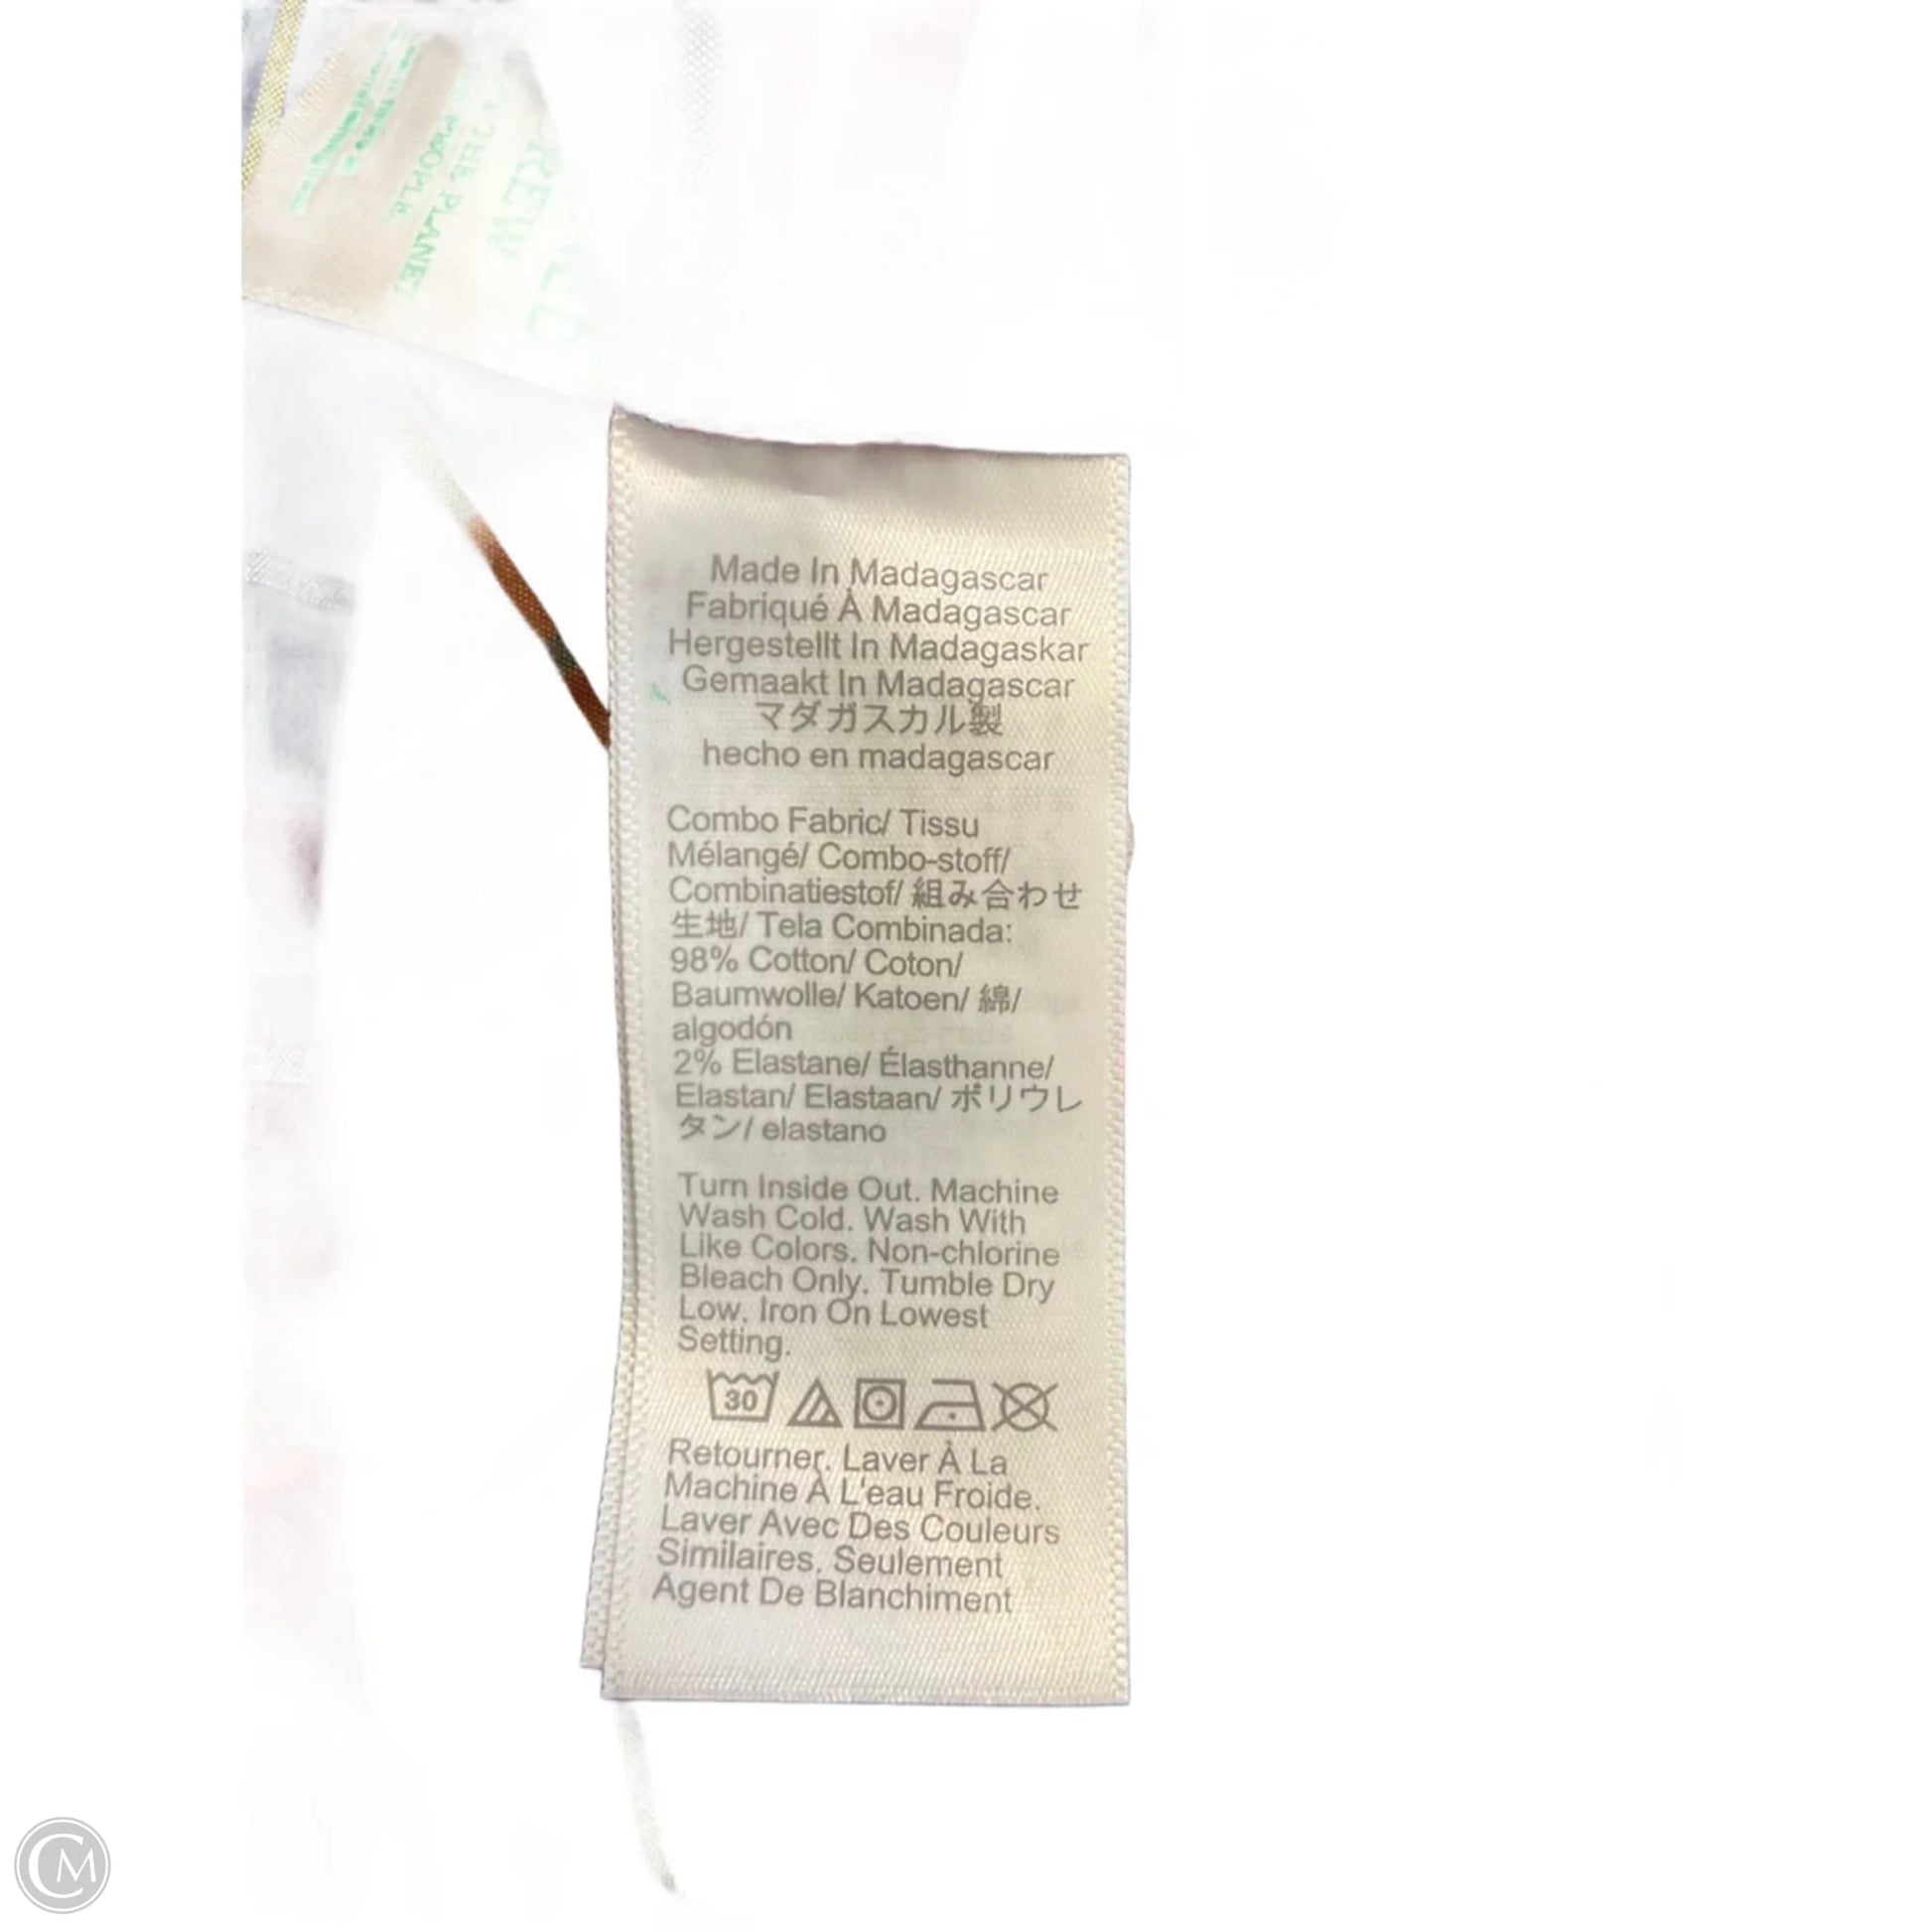 THE PLANET
PEOPLE
Made In Madagascar
Fabriqué À Madagascar
Hergestellt In Madagaskar
Gemaakt In Madagascar
マダガスカル製
hecho en madagascar
Combo Fabric/ Tissu
Mélangé/ Combo-stoff/
Combinatiestof/ 組み合わせ
生地/ Tela Combinada:
98% Cotton/ Coton/
Baumwolle/ Katoen/ 綿/
algodón
2% Elastane/ Élasthanne/
Elastan/ Elastaan/ ポリウレ
タン/ elastano
Turn Inside Out. Machine
Wash Cold. Wash With
Like Colors. Non-chlorine
Bleach Only. Tumble Dry
Low. Iron On Lowest
Setting.
30
Retourner. Laver À La
Machine À L'eau Froide.
Laver Avec Des Couleurs
Similaires. Seulement
Agent De Blanchiment
CM